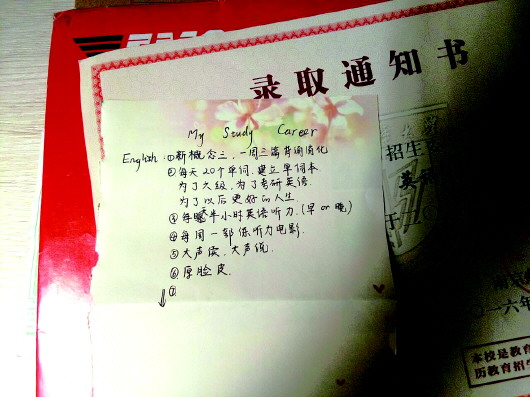 录取通知书
My Study Career
English:①新概念三,一周三篇背诵消化
②每天20个单词,建立单词本
为了六级,为了考研英语.
为了以后更好的人生
③每天半小时英语听力.(早or晚)
④每周一部练听力电影.
⑤大声读,大声说.
⑥厚脸皮.
⑦
招生
于二〇
〇一六年
本校是教育
历教育招生